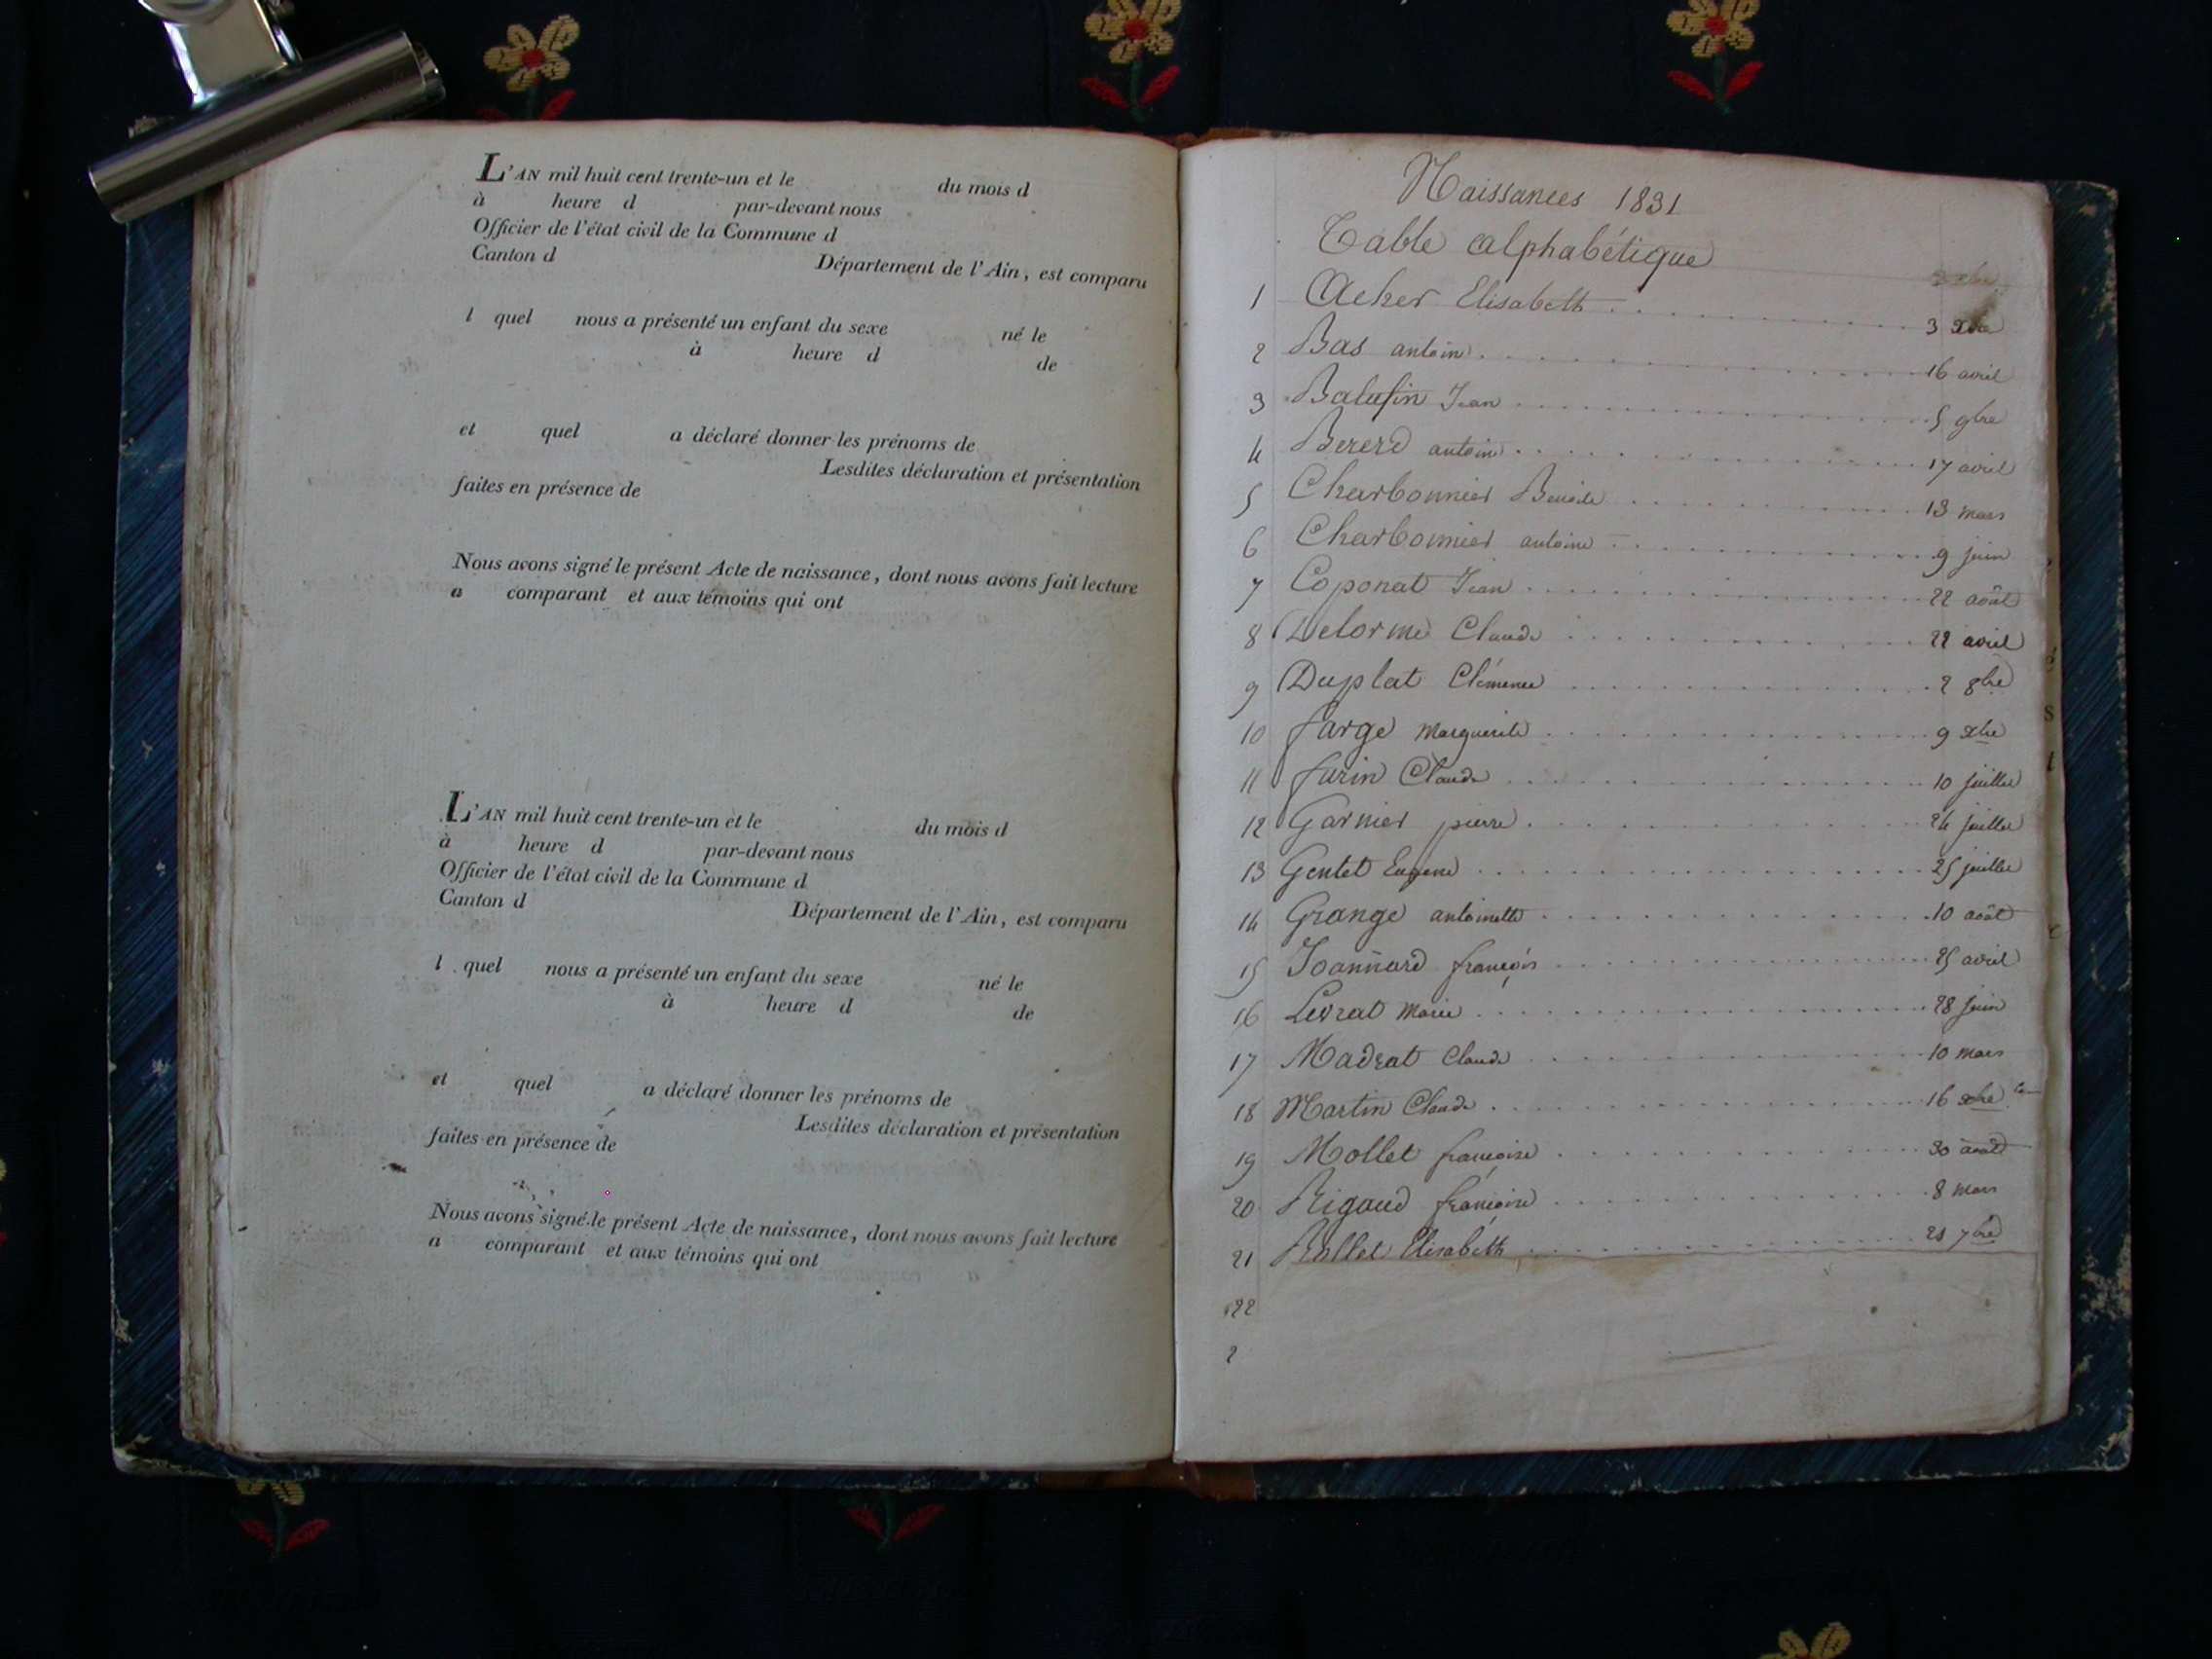 L'AN mil huit cent trente-un et le du mois d
à heure d par-devant nous
Officier de l'état civil de la Commune d
Canton d Département de l'Ain, est comparu
l quel nous a présenté un enfant du sexe né le
à heure d de
et quel a déclaré donner les prénoms de
Lesdites déclaration et présentation
faites en présence de
Nous avons signé le présent Acte de naissance, dont nous avons fait lecture
a comparant et aux témoins qui ont
L'AN mil huit cent trente-un et le du mois d
à heure d par-devant nous
Officier de l'état civil de la Commune d
Canton d Département de l'Ain, est comparu
l quel nous a présenté un enfant du sexe né le
à heure d de
et quel a déclaré donner les prénoms de
Lesdites déclaration et présentation
faites en présence de
Nous avons signé le présent Acte de naissance, dont nous avons fait lecture
a comparant et aux témoins qui ont
Naissances 1831
Table alphabétique
1 Acher Elisabeth 3 xbre
2 Bas antoine 16 avril
3 Balufin Jean 5 9bre
4 Bererd antoine 17 avril
5 Charbonnier Benoite 13 mars
6 Charbonnier antoine 9 juin
7 Coponat Jean 22 août
8 Delorme Claude 22 avril
9 Duplat Clémence 2 8bre
10 farge Marguerite 9 xbre
11 furin Claude 10 juillet
12 Garnier pierre 24 juillet
13 Gentet Eugene 25 juillet
14 Grange antoinette 10 août
15 Joannard françois 25 avril
16 Levrat Marie 28 juin
17 Madrat Claude 10 mars
18 Martin Claude 16 xbre
19 Mollet françoise 30 août
20 Rigaud françoise 8 mars
21 Rollet Elisabeth 21 7bre
22
2